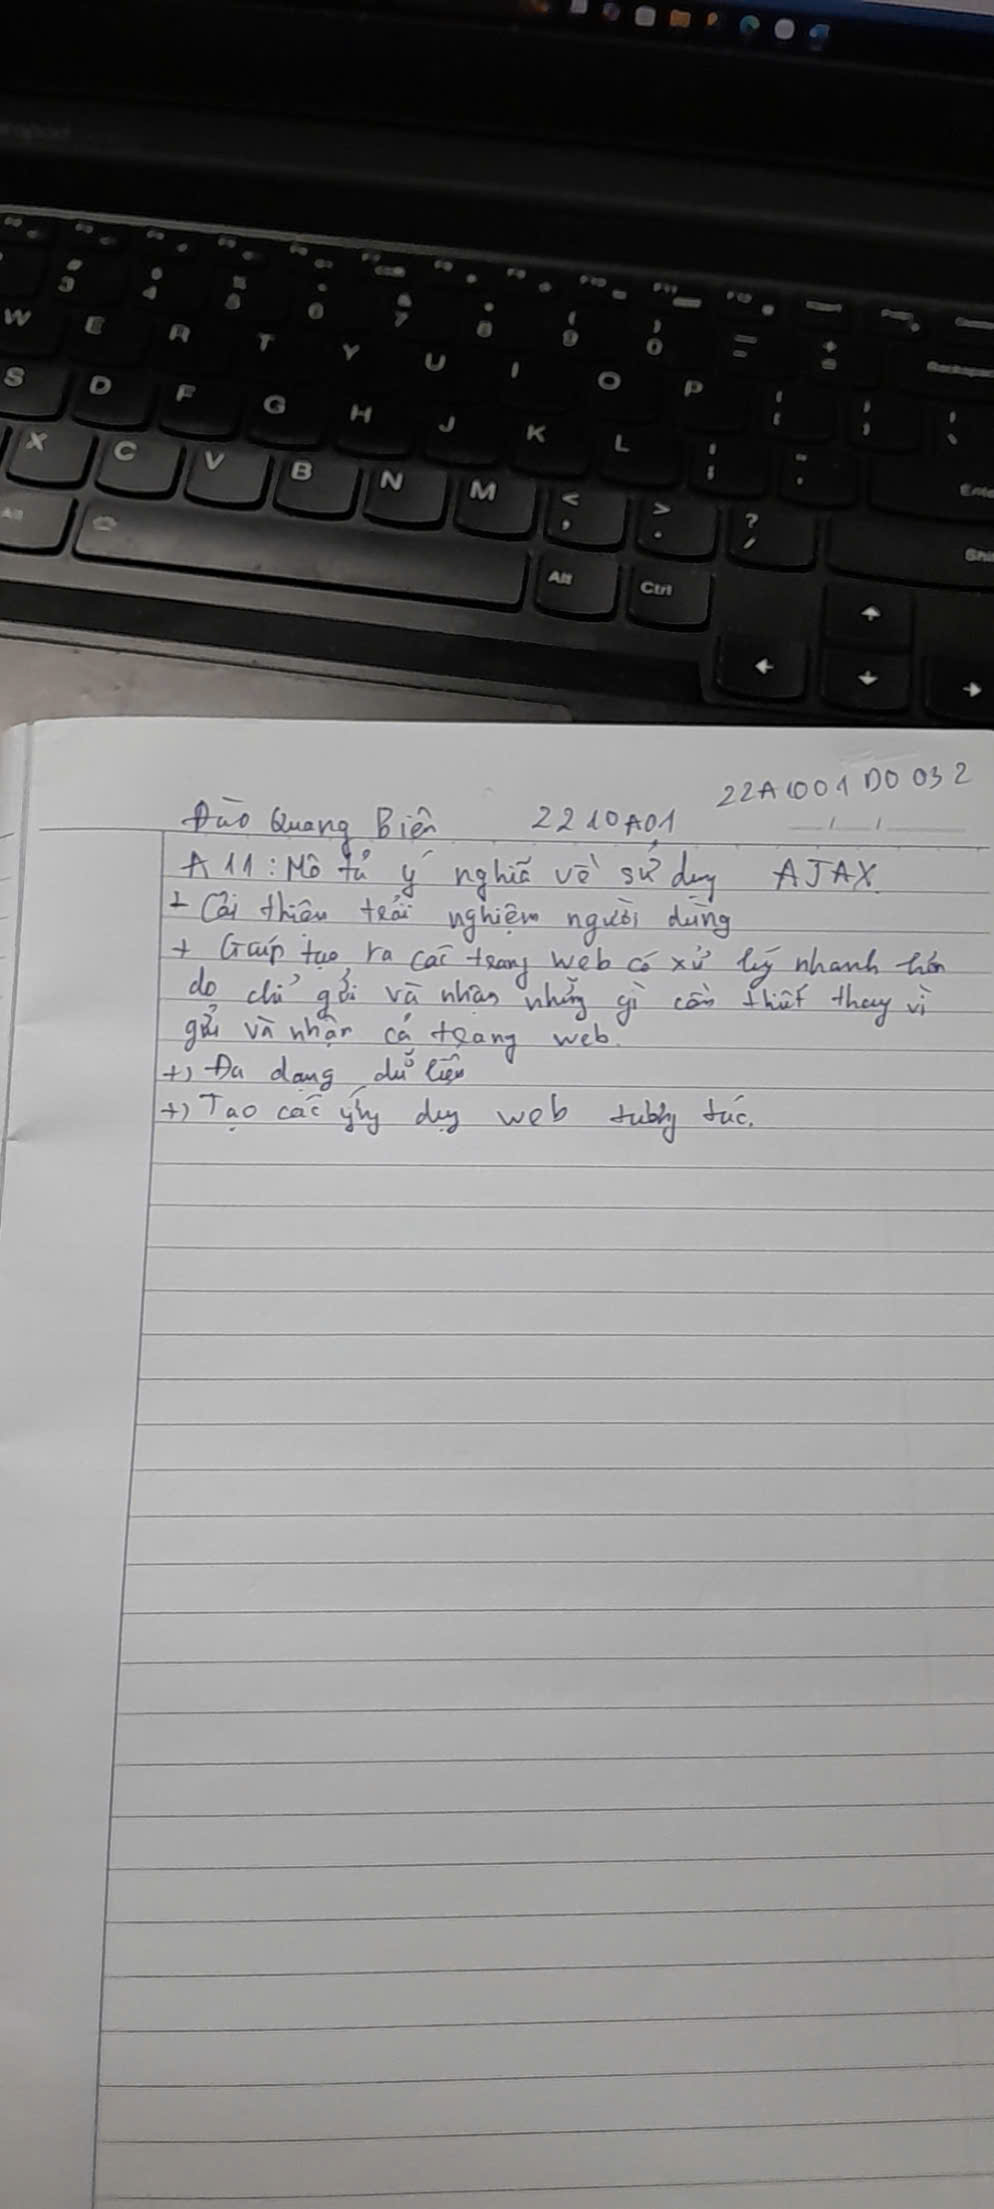 W E R T Y U I O P
S D F G H J K L
X C V B N M < , > . ? /
Alt Ctrl
22A1001D0032
Đào Quang Biên 2210A01
A11: Mô tả ý nghĩa về sử dụng AJAX.
+ Cải thiện trải nghiệm người dùng
+ Giúp tạo ra các trang web có xử lý nhanh hơn
do chỉ gửi và nhận những gì cần thiết thay vì
gửi và nhận cả trang web.
+) Đa dạng dữ liệu
+) Tạo các ứng dụng web tương tác.